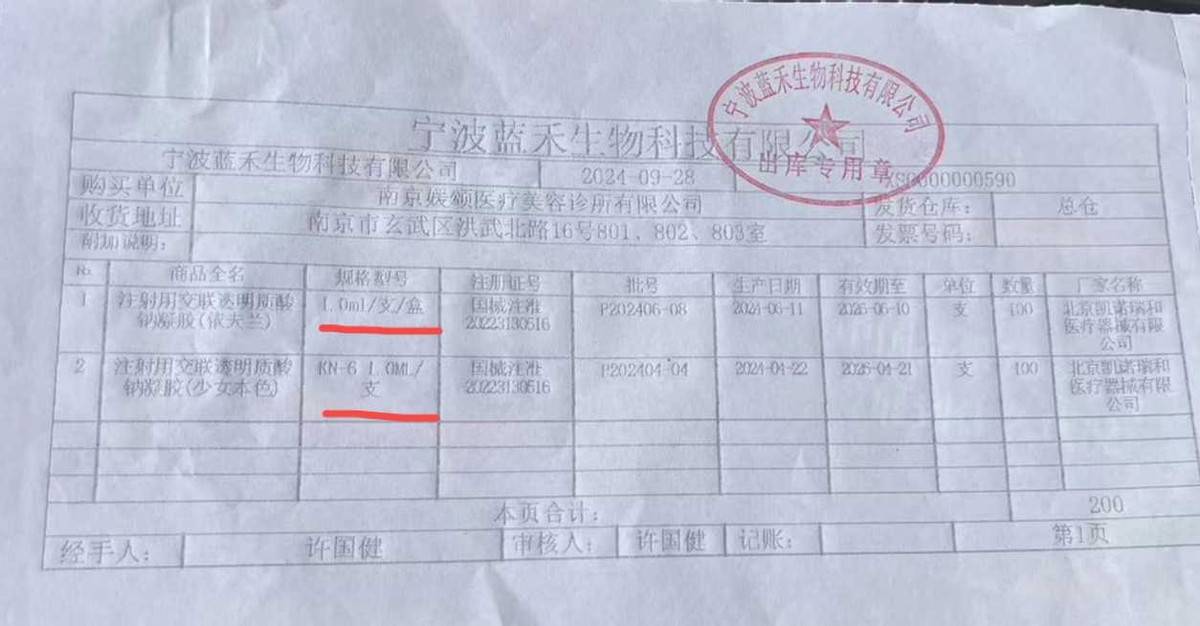 宁波蓝禾生物科技有限公司
宁波蓝禾生物科技有限公司
出库专用章
宁波蓝禾生物科技有限公司 2024-09-28 XS0000000590
购买单位 南京媛颂医疗美容诊所有限公司 发货仓库: 总仓
收货地址 南京市玄武区洪武北路16号801、802、803室 发票号码:
附加说明:
№ 商品全名 规格型号 注册证号 批号 生产日期 有效期至 单位 数量 厂家名称
1 注射用交联透明质酸 1.0ml/支/盒 国械注准 P202406-08 2024-06-11 2026-06-10 支 100 北京凯诺瑞和
钠凝胶(依夫兰) 20223130516 医疗器械有限
公司
2 注射用交联透明质酸 KN-6 1.0ML/ 国械注准 P202404-04 2024-04-22 2026-04-21 支 100 北京凯诺瑞和
钠凝胶(少女本色) 支 20223130516 医疗器械有限
公司
本页合计: 200
经手人: 许国健 审核人: 许国健 记账: 第1页